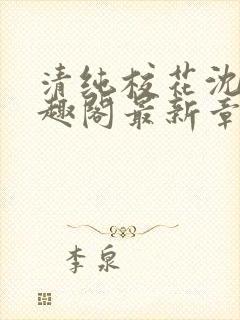 清纯校花沈
趣阁最新章
李泉